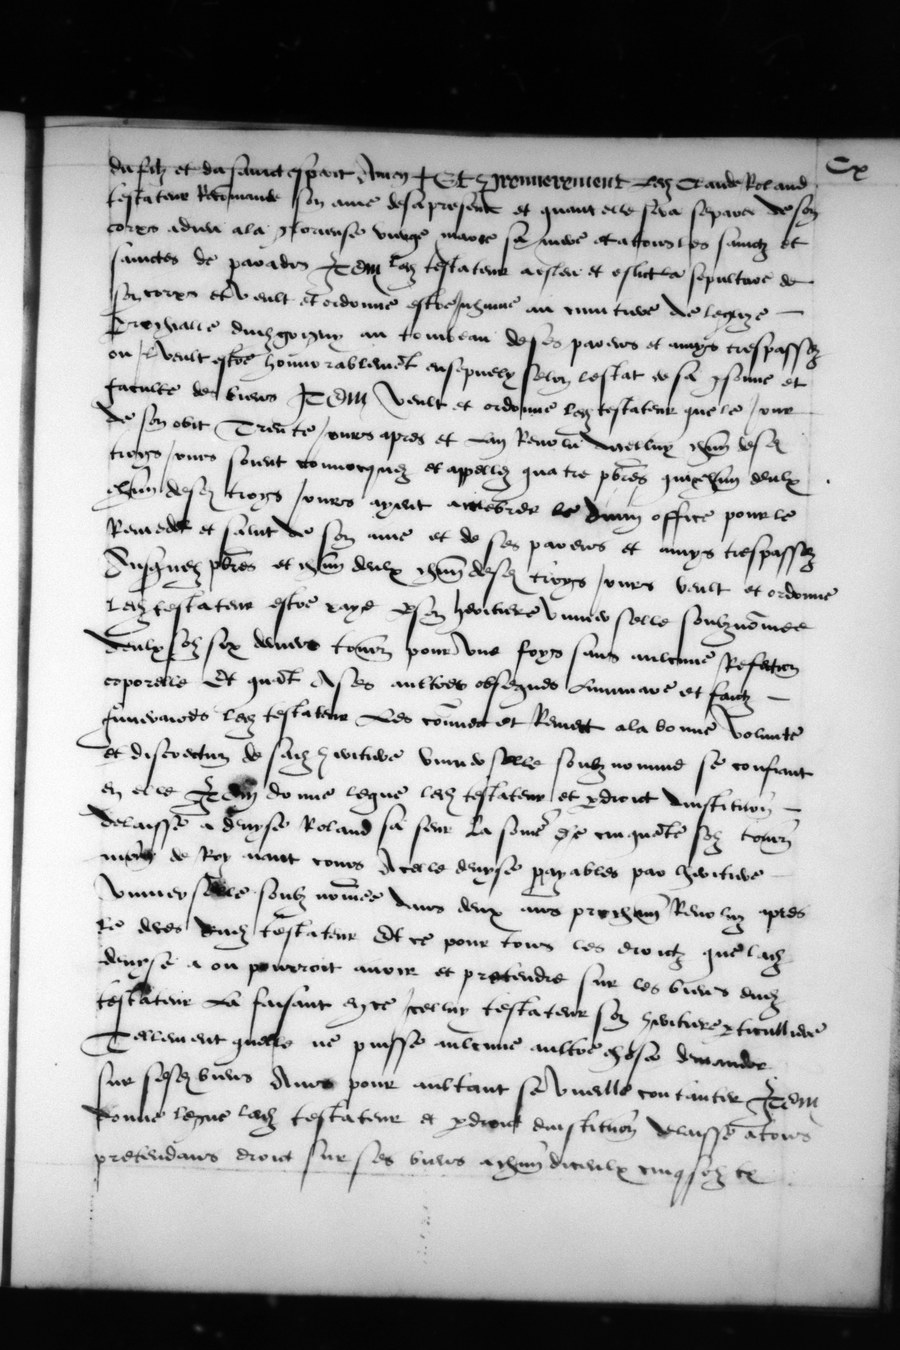 Cx
du filz et du sainct esperit Amen + Et premierement Led Claude Roland
testateur Recomande son ame des apresent et quant elle sera separee de son
corps a dieu a la glorieuse vierge marie sa mere et a tous les sainctz et
sainctes de paradis Item led testateur a esleu et eslict sa sepulture de
son corps et veult et ordonne estre inhume au cimitiere de leglize
parrochialle dud au tombeau de ses parens et amys trespassez
ou il veult estre honnorablemet ensepvely selon lestat de sa psonne et
faculte de biens Item veult et ordonne led testateur que le jour
de son obit Trente jours apres et Lan Revolu dicelluy chun desd
troys jours soient convocquez et appellez quatre pbres qui chun deulx
chun desd troys jours ayent a celebrer le divin office pour le
Remede et salut de son ame et de ses parens et amys trespassez
Ausquelz pbres et chun deulx chun desd troys jours veult et ordonne
Led testateur estre paye p son heritiere universelle soubz nomee
deulx solz six deniers tourn pour une foys sans aulcune Refection
coporelle Et quat A ses aultres obseques Luminaire et faictz
funeraires led testateur Les comect et Remect a la bonne volunte
et discretion de sad heritiere universelle soubz nommee se confiant
en elle Item donne legue led testateur et p droict dinstitution
delaisse a denyse Roland sa seur La some de cinquate solz tourn
monoye de Roy aiant cours A celle denyse payables par heritiere
universelle soubz nomee dans deux ans prochains Revoluz apres
le deces dud testateur Et ce pour tous les droictz que lad
denyse a ou pourroit avoir et pretendre sur les biens dud
testateur La faisant en ce icelluy testateur son heritiere pticulliere
Tellement quelle ne puisse aulcune aultre chose demander
sur sesd biens Ains pour aultant se vueille contanter Item
donne legue led testateur et p droict dinstitution delaisse a tous
pretendans droict sur ses biens a chun diceulx cinq solz tz